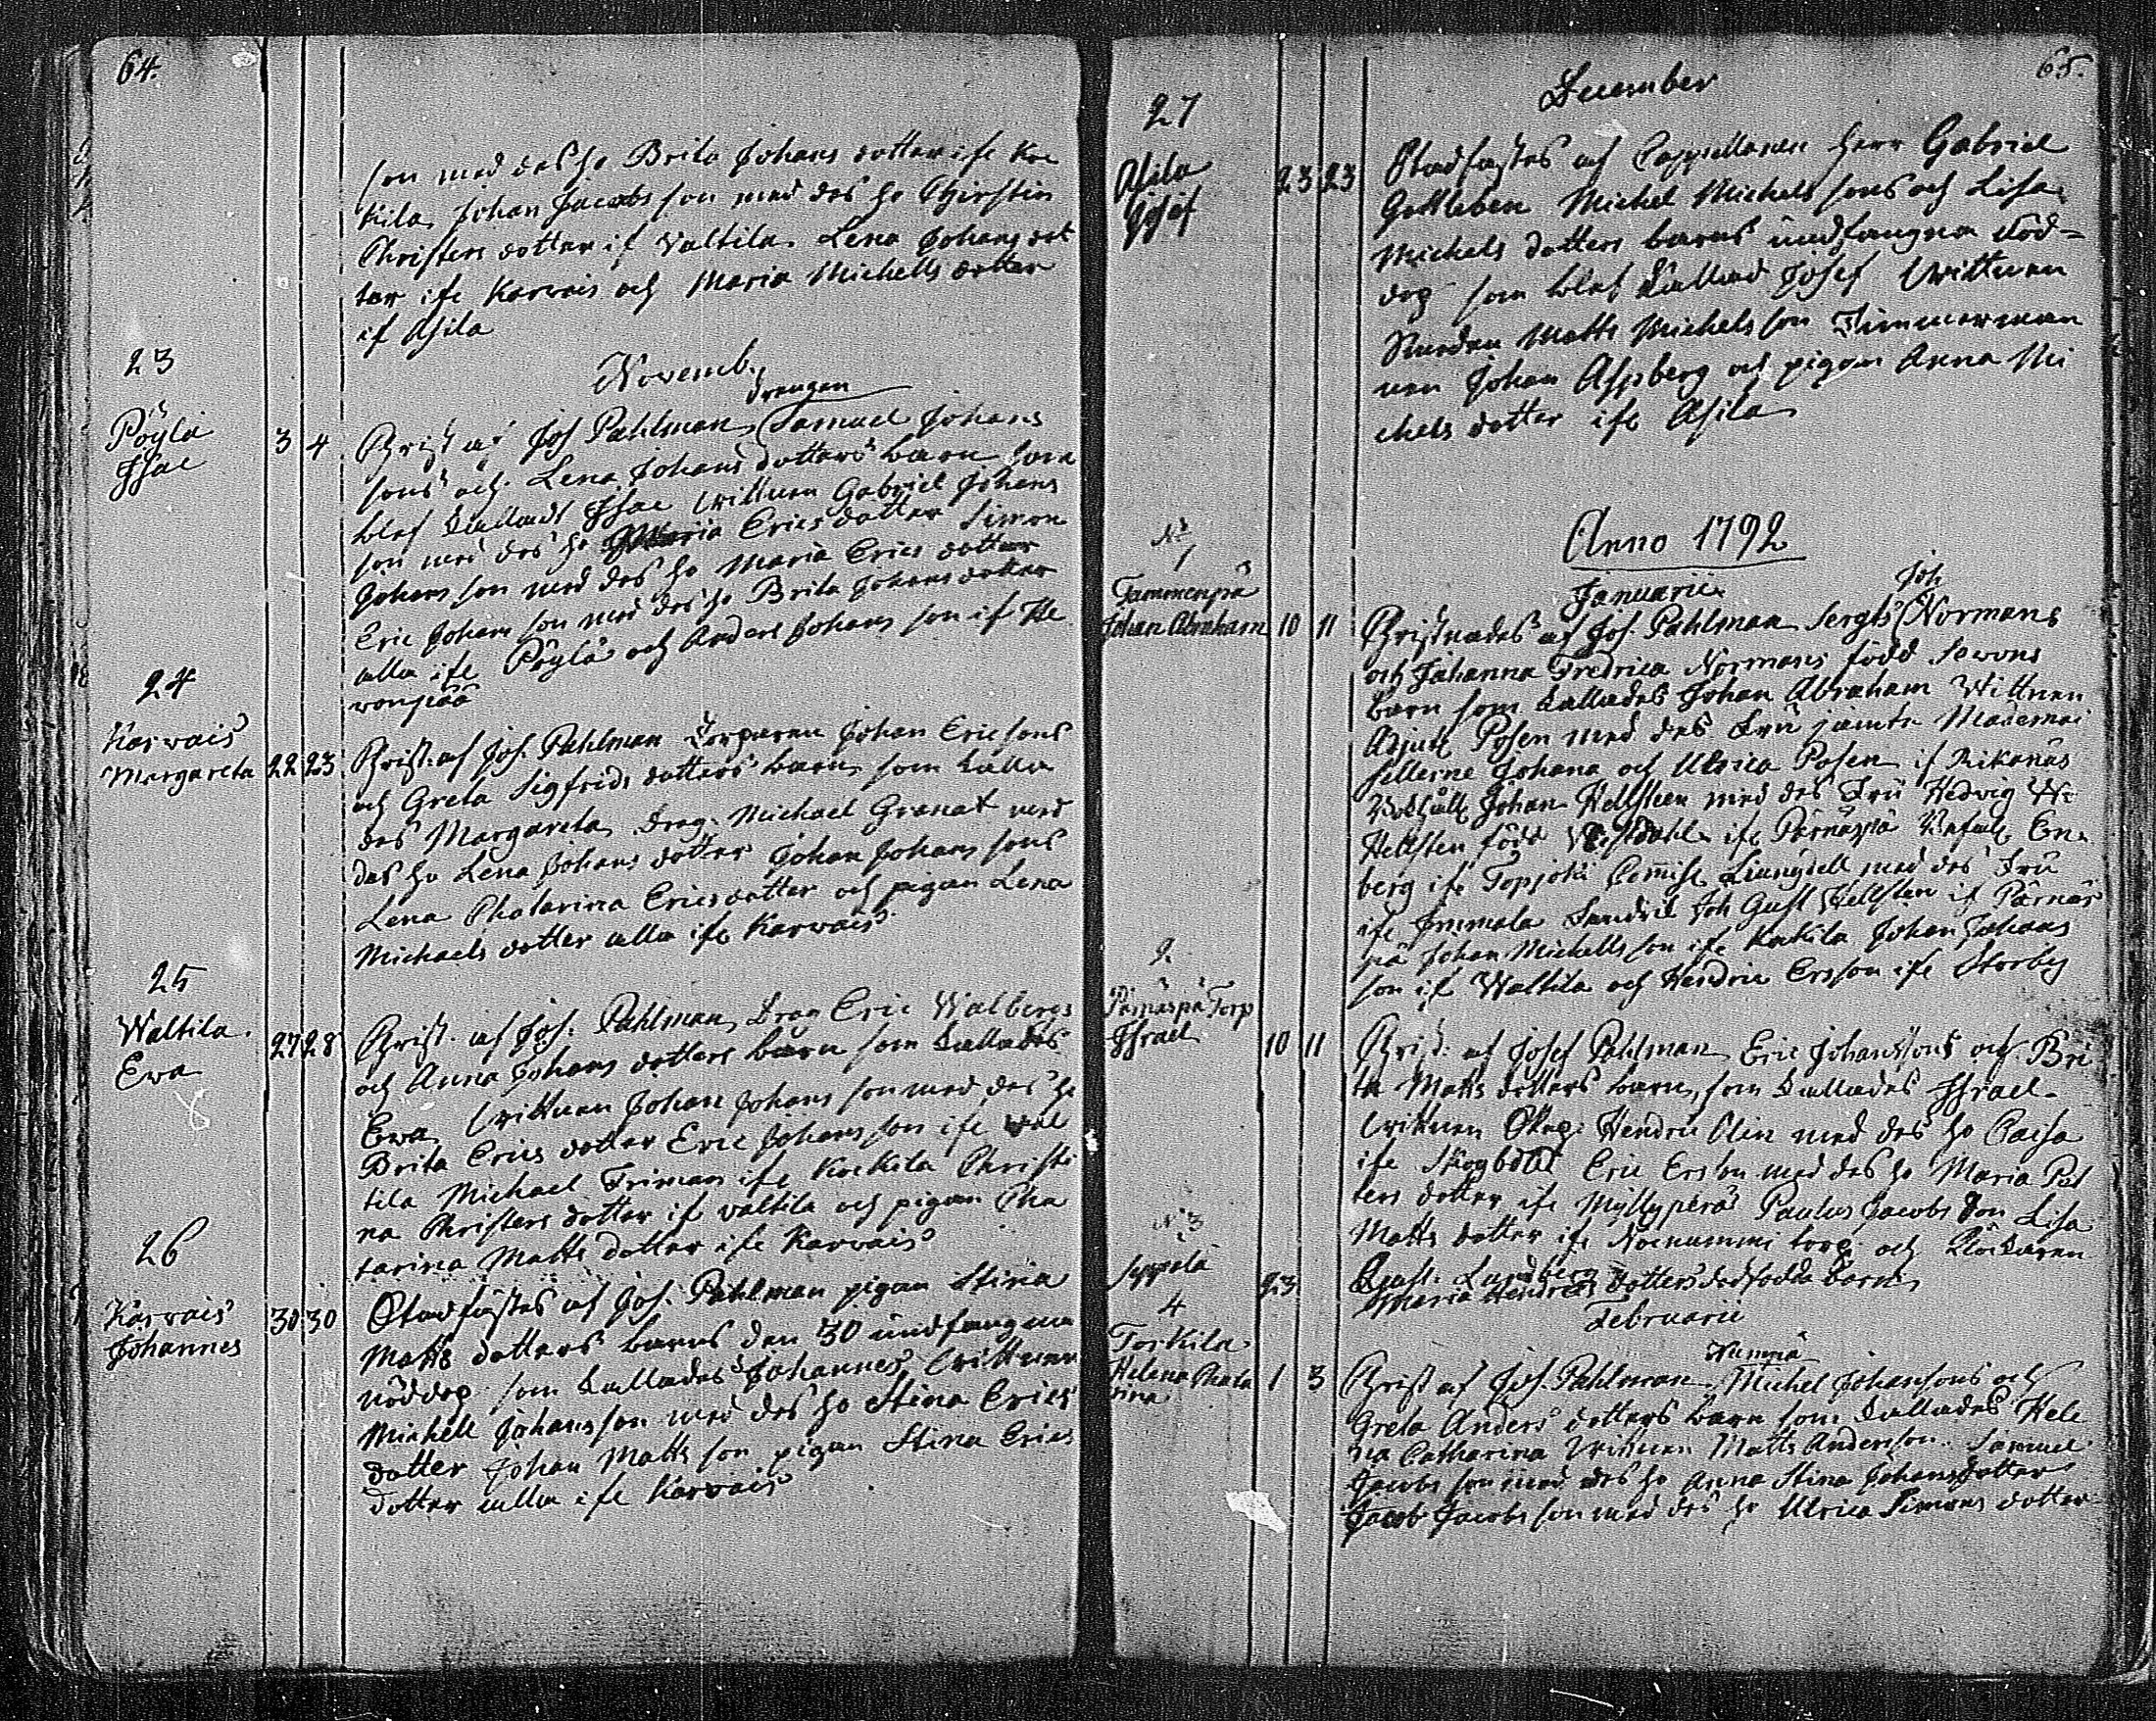 64.
son med des h: Brita Johans dotter ifr. Koc
kila, Johan Jacobs son med des h: Chirstin
Christers dotter if Waltila. Lena Johans dot
ter ifr. Karvais och Maria Michells dotter
if Asila
23
Novemb.
drengen
Pöylä
Isac
3 4
Christ af Jos Pahlman, Samuel Johans
sons och Lena Johans dotters barn som
blef kallad Isac Wittnen Gabriel Johans
son med des h: Maria Erics dotter Simon
Johans son med des h: Maria Erics dotter
Eric Johans son med des h: Brita Johans dotter
alla ifr. Pöylä och Anders Johans son if He
ronpää
24
Karvais
Margareta
22 23
Christ. af Jos. Pahlman Torparen Johan Ericsons
och Greta Sigfrids dotters barn, som kalla
des Margareta, Drag. Michael Granat med
des h: Lena Johans dotter Johan Johans sons
Lena Chatarina Ericsdotter och pigan Lena
Michaels dotter alla ifr. Karvais
25
Waltila.
Ewa
27 28
Christ. af Jos. Pahlman, Drag Eric Walbergs
och Anna Johans dotters barn som kallades
Ewa, Wittnen Johan Johans son med des h:
Brita Erics dotter Eric Johans son ifr. Wal
tila Michael Friman ifr. Kockila Christi
na Christers dotter if Waltila och pigan Cha
tarina Matts dotter ifr. Karvais
26
Karvais
Johannes
30 30
Stadfästes af Jos. Pahlman pigan Stina
Matts dotters barns den 30 undfangna
nöddop som kallades Johannes Wittnen
Michell Johansson med des h: Stina Erics
dotter Johan Matts son pigan Stina Erics
dotter alla ifr. Karvais
65.
December
27
Asila
Josef
23 23
Stadfästes af Cappellanen Herr Gabriel
Gottleben Michel Michels sons och Lisa
Michels dotters barns undfangna nöd-
dop som blef kallad Josef Wittnen
Matts Michels son Timmerman
nen Johan Aspberg och pigan Anna Mi
chels dotter ifr. Asila
Anno 1792
Januarii
Joh
No
1
Tammenpä
Johan Abraham
10 11
Christnades af Jos. Pahlman Sergts Normans
och Johanna Fredrica Normans född Sevons
barn som kallades Johan Abraham Wittnen
Adjut. Posen med des Fru jämte Mademoi
sellerne Johana och Ulrica Posen if Rikanäs
Johan Hellsteen med des Fru Hedvig
Hellsten född ifr. Pärnäspä En
berg ifr. Topjoki Comiss. Liungdell med des Fru
ifr. Immala Joh Gust Hellsten if Pärnäs
pä Johan Michellsson ifr. Kockila Johan Johans
son if Waltila och Hendric Ersson ifr. Storby
2
Pärnäspä Torp
Israel
10 11
Christ. af Josef Pahlman Eric Johanssons och Bri
ta Matts dotters barn, som kallades Israel.
Wittnen Hendric Olin med des h: Caisa
ifr. Skogböle Eric Ersson med des h: Maria Pet
ters dotter ifr. Myllyperä Paulus Jacobs son Lisa
Matts dotter ifr. Nocnummi torp och Klockaren
Gust. Lundberg
No 3
Seppälä
23
Maria Hendrics dotters dödfödda barn
Februarii
4
Torkila
Helena Chata
rina
1 3
Nummä
Christ af Jos. Pahlman, Michel Johansons och
Greta Anders dotters barn som kallades Hele
na Catharina Wittnen Matts Anderson Samuel
Jacobs son med des h: Anna Stina Johans dotter
Jacob Jacobs son med des h: Ulrica Simons dotter